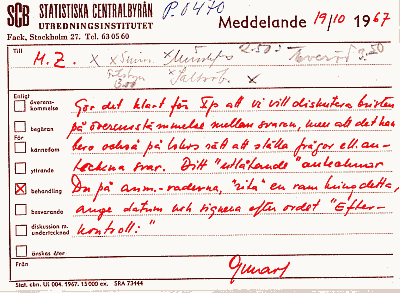 SCB STATISTISKA CENTRALBYRÅN
UTREDNINGSINSTITUTET
P. 0470
Fack, Stockholm 27. Tel. 63 05 60
Meddelande 19/10 1967
Till
M. Z.
2.50:-
Enligt
överens-
kommelse
begäran
För
kännedom
yttrande
behandling
besvarande
diskussion m.
undertecknad
önskas åter
Gör det klart för Ip att vi vill diskutera bristen
på överensstämmelse mellan svaren, men att det kan
bero också på Iohns sätt att ställa frågor ell. an-
teckna svar. Ditt "utlåtande" antecknar
Du på anm.-raderna, "rita" en ram kring detta,
ange datum och signera efter ordet "Efter-
kontroll:"
Från
Gunart
Stat. cbn. Ui 004. 1967. 15 000 ex. SRA 73444